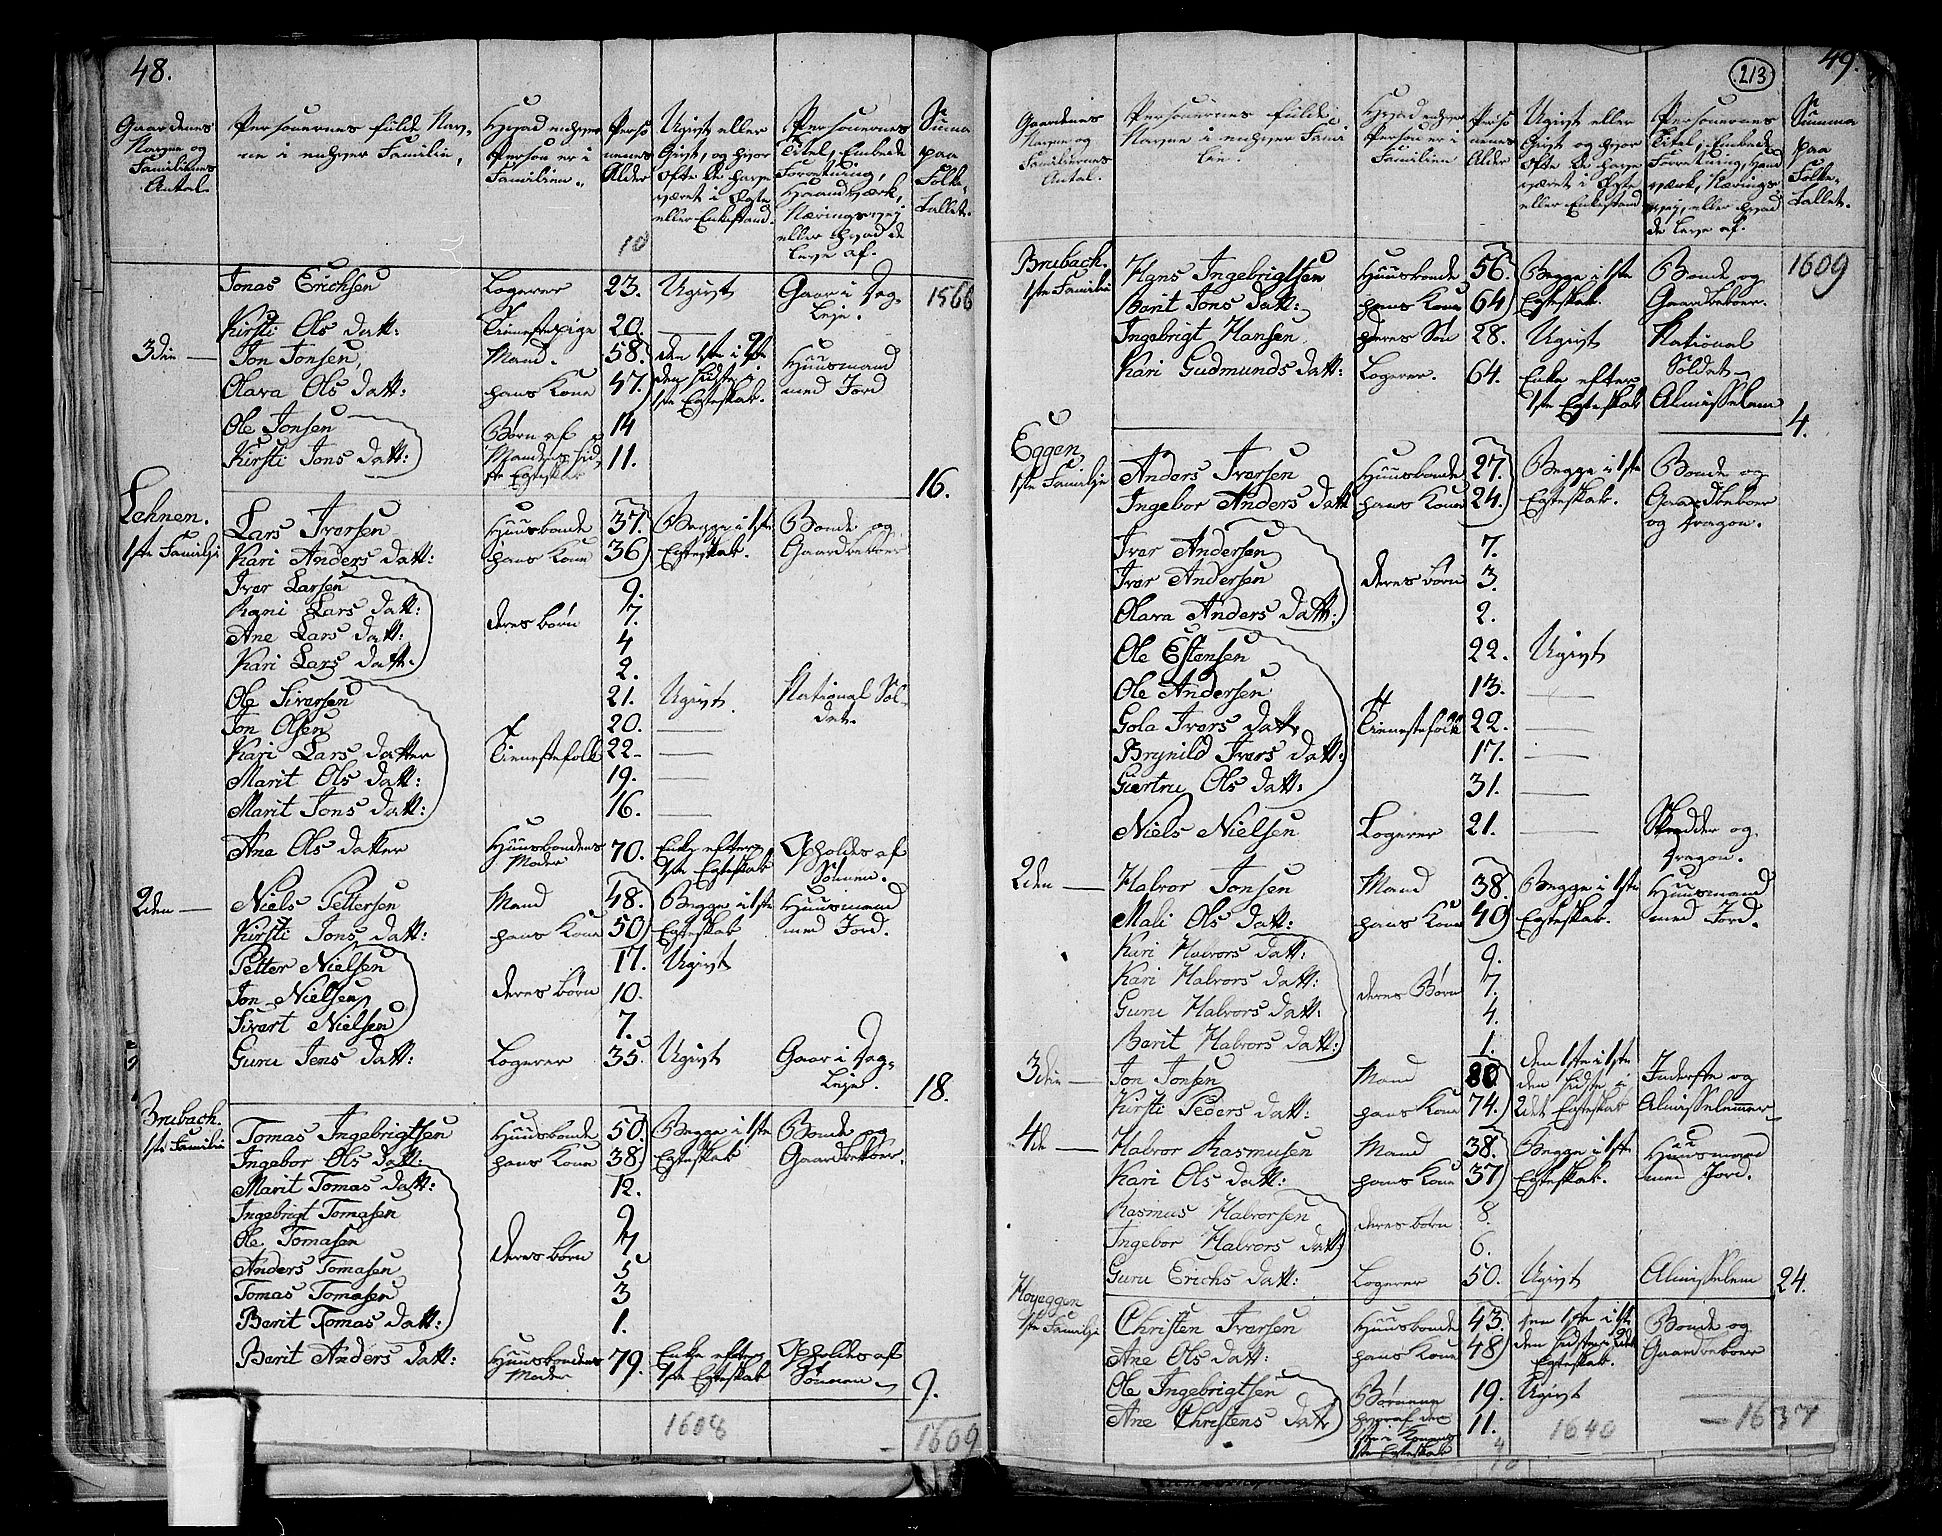 48.
Gaardenes Navne og Familiernes Antal.
Personernes fulde Navne i enhver Familie,
Hvad enhver Person er i Familien.
Personernes Alder
Ugivt eller Givt, og hvor ofte de have været i Egte- eller Enkestand.
Personernes Titel, Embede Forretning, Haandværk, Næringsvej eller hvad de leve af.
Summa paa Folke-Tallet.
10
Jonas Erichsen Logerer 23. Ugivt Gaar i Dag-Leje. 1566
Kirsti Ols datt: Tienestepige 20. —
3die — Jon Jonsen, Mand. 58. den 1ste i 2det Huusmand
Olava Ols datt: hans Kone 47. den sidste i 1ste Egteskab. med Jord
Ole Jonsen Børn af 14
Kirsti Jons datt: Mandens sidste Egteskab 11.
16.
Lehnen. Lars Iversen Huusbonde 37. Begge i 1ste Bonde og
1ste Familie Kari Anders datt: hans Kone 36 Egteskab. Gaardbeboer
Iver Larsen 9.
Ragni Lars datt: deres børn 7.
Ane Lars datt: 4
Kari Lars datt. 2.
Ole Siversen 21. Ugivt National Sol-dat.
Jon Olsen 20. —
Kari Lars datter Tienestefolk 22 —
Marit Ols datt: 19. —
Marit Jons datt: 16. —
Ane Ols datter Huusbondens Moder 70. Enke efter 1ste Egteskab Opholdes af Sønnen.
2den — Niels Pettersen Mand 48. Begge i 1ste Huusmand
Kirsti Jons datt: hans Kone 50 Egteskab med Jord.
Petter Nielsen 17. Ugivt
Jon Nielsen deres børn 10.
Sivert Nielsen 7.
Guru Jens datt: Logerer 35. Ugivt Gaar i Dag-Leje.
18.
Brubach. Tomas Ingebrigtsen Huusbonde 50. Begge i 1ste Bonde og
1ste Familie Ingebor Ols datt: hans Kone 38. Egteskab Gaardbeboer.
Marit Tomas datt: 12.
Ingebrigt Tomasen 9
Ole Tomasen deres børn 7.
Anders Tomasen 5
Tomas Tomasen 3
Berit Tomas datt: 1.
Berit Anders datt: Huusbondens Moder 79. Enke efter 1ste Egteskab Opholdes af Sønnen —
9.
1608 1609
213 49.
Gaardenes Navne og Familiernes Antal.
Personernes fulde Navne i enhver Familie.
Hvad enhver Person er i Familien
Personernes Alder
Ugivt eller Givt og hvor ofte de have været i Egte- eller Enkestand
Personernes Titel, Embede Forretning, Haandværk, Næringsvej, eller hvad de leve af.
Summa paa Folke-Tallet.
Brubach. Hans Ingebrigtsen Huusbonde 56. Begge i 1ste Bonde og 1609
1ste Familie Marit Jons datt: hans Kone 64 Egteskab. Gaardbeboer.
Ingebrigt Hansen deres Søn 28. Ugivt National Soldet —
Kari Gudmunds datt: Logerer. 64. Enke efter 1ste Egteskab Almisselem
4.
Eggen, Anders Iversen Huusbonde 27. Begge i 1ste Bonde og
1ste Familje Ingebor Anders datt hans Kone 24. Egteskab. Gaardbeboer og Dragon.
Iver Andersen 7.
Iver Andersen deres børn 3.
Olava Anders datt: 2.
Ole Estensen 22. Ugivt
Ole Andersen 13. —
Gola Ivers datt, Tienestefolk 22. —
Brynild Ivers datt: 17. —
Giertru Ols datt: 31. —
Niels Nielsen Logerer 21. — Skredder og Dragon.
2den — Halvor Jonsen Mand 38. Begge i 1ste Huusmand
Mali Ols datt: hans Kone 49 Egteskab. med Jord.
Kari Halvors datt: 9.
Kari Halvors datt: deres Børn 7.
Guru Halvors datt: 4.
Berit Halvors datt: 1.
3die — Jon Jonsen Mand 80 den 1ste i 1ste Inderste og
Kirsti Peders datt: hans Kone 74. den sidste i 2det Egteskab Almisselemmer
4de — Halvor Rasmusen Mand 38. Begge i 1ste Huusmand
Kari Ols datt: hans Kone 37 Egteskab. med Jord.
Rasmus Halvorsen deres børn 8.
Ingebor Halvors datt: 6.
Guru Erichs datt: Logerer 50. Ugivt Almisselem 24.
Hoyeggen Christen Iversen Huusbonde 43. den 1ste i 1ste Bonde og
1ste Familie Ane Ols datt: hans Kone 48 den sidste i 2det Egteskab. Gaardbeboer
Ole Ingebrigtsen Børnene 19. Ugivt
Ane Christens datt 11.
1ste Egteskab
1640 — 1637